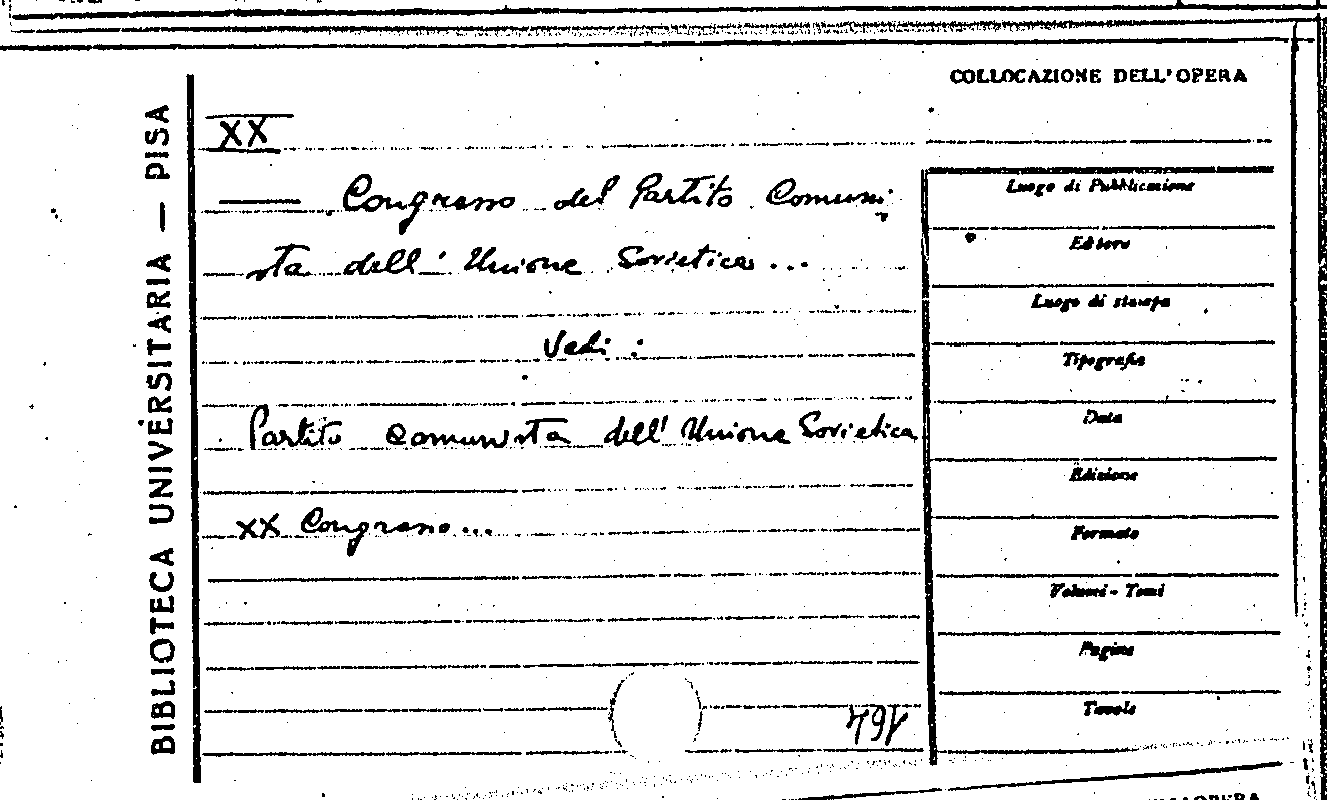 COLLOCAZIONE DELL'OPERA
BIBLIOTECA UNIVERSITARIA — PISA
XX
—— Congresso del Partito Comuni
sta dell'Unione Sovietica...
Vedi:
Partito comunista dell'Unione Sovietica
XX Congresso...
164
Luogo di Pubblicazione
Editore
Luogo di stampa
Tipografia
Data
Edizione
Formato
Volumi - Tomi
Pagine
Tavole